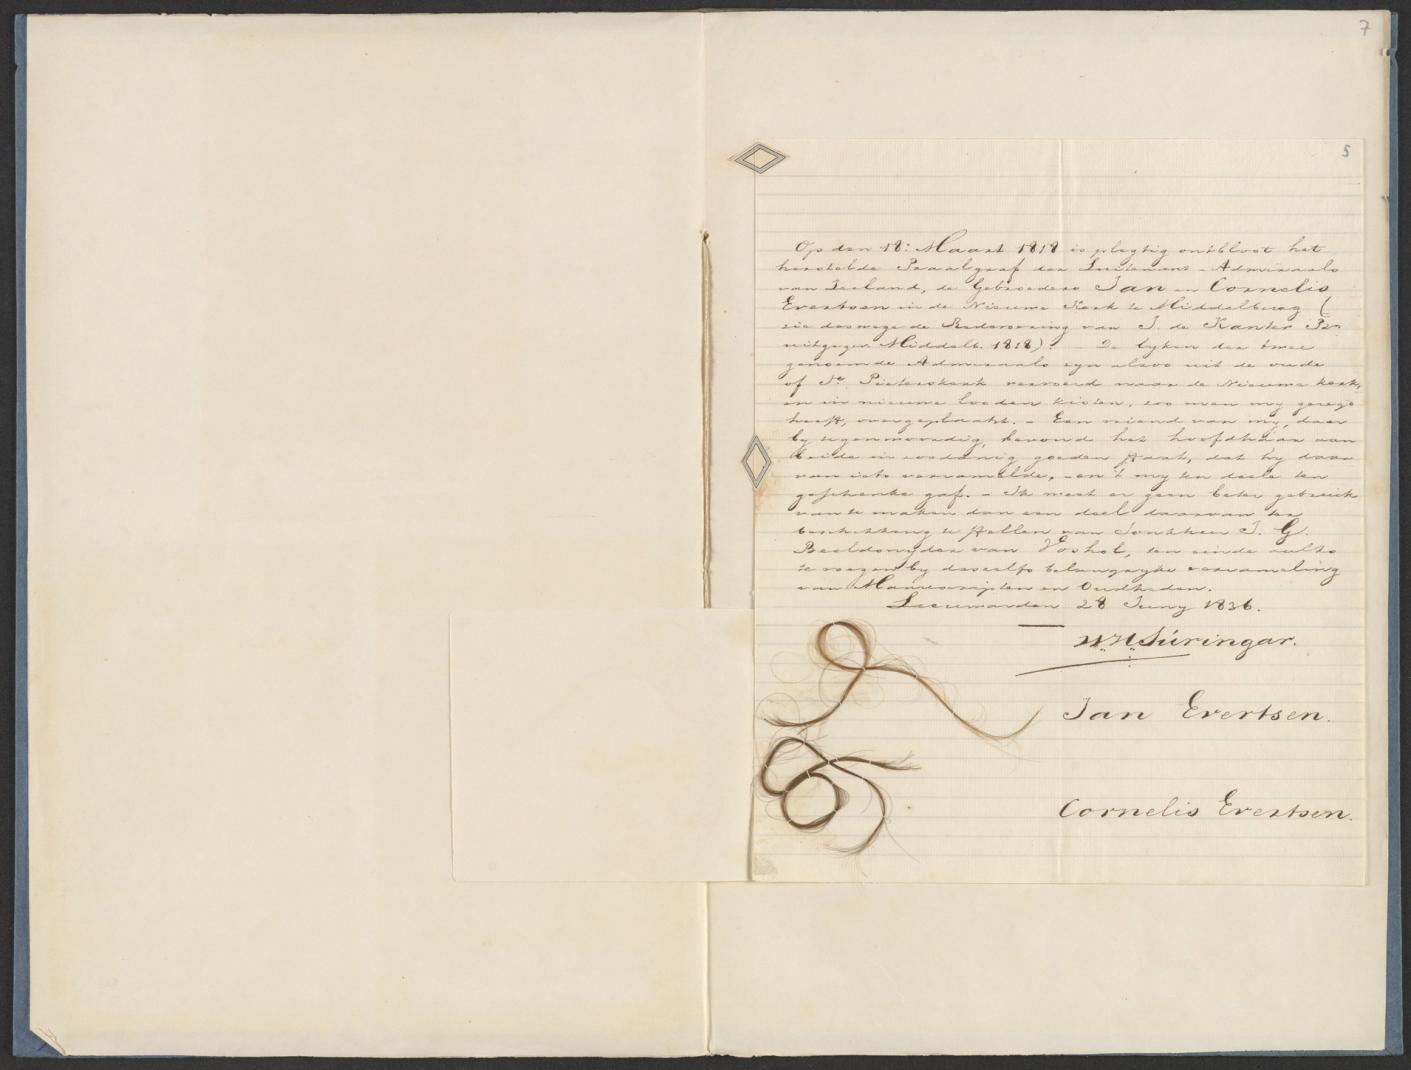 7
5
Op den 18: Maart 1818 is plegtig ontbloot het
herstelde Praalgraf der Luitenant-Admiraals
van Zeeland, de Gebroeders Jan en Cornelis
Evertsen in de Nieuwe Kerk te Middelburg (
zie deswege de Redevoering van J. de Kanter Pz.
uitgegev. Middelb. 1818). - De lyken der twee
genoemde Admiraals zyn alsoo uit de oude
of St. Pieterskerk vervoerd naar de Nieuwe kerk,
en in nieuwe looden kisten, zoo men my gezegd
heeft, overgeplaatst. - Een vriend van my, daar
by tegenwoordig, bevond het hoofdhaar van
beide in zoodanig goeden staat, dat hy daar
van iets verzamelde, en 't my ten deele ten
geschenke gaf. - Ik weet er geen beter gebruik
van te maken dan een deel daarvan ter
beschikking te stellen van Jonkheer J. G.
Beeldsnyder van Voshol, ten einde zulks
te voegen by deszelfs belangryke verzameling
van Manuscripten en Oudheden.
Leeuwarden 28 Juny 1836.
W.H. Suringar.
Jan Evertsen.
Cornelis Evertsen.